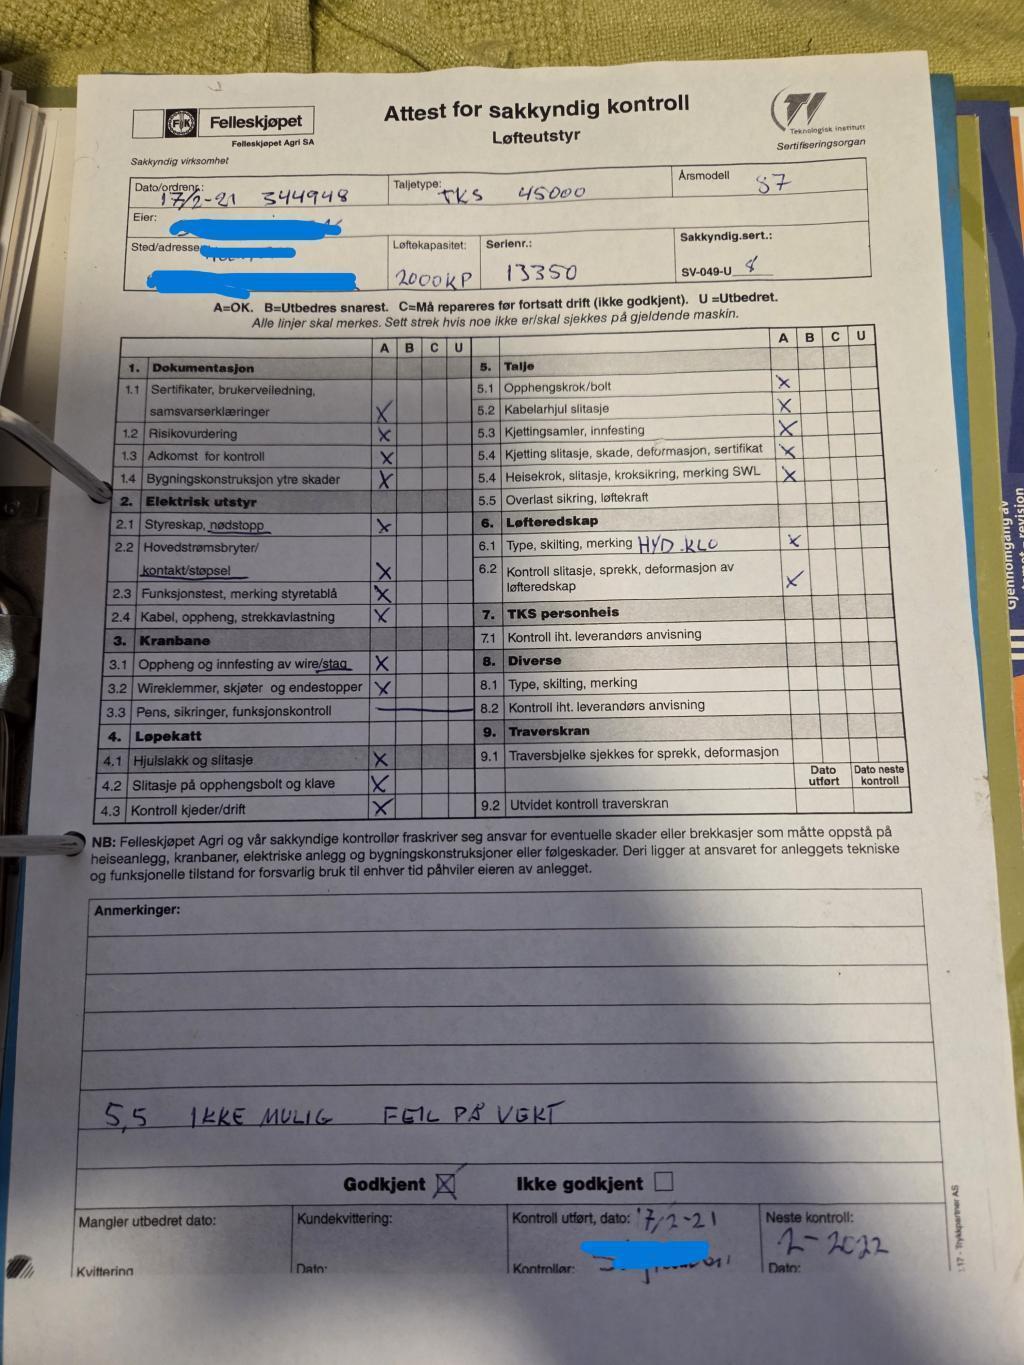 Felleskjøpet
Felleskjøpet Agri SA
Sakkyndig virksomhet
Attest for sakkyndig kontroll
Løfteutstyr
Teknologisk institutt
Sertifiseringsorgan
Dato/ordrenr.: 17/2-21 344948
Taljetype: TKS 45000
Årsmodell 87
Eier:
Sted/adresse
Løftekapasitet: 2000KP
Serienr.: 13350
Sakkyndig.sert.:
SV-049-U 8
A=OK. B=Utbedres snarest. C=Må repareres før fortsatt drift (ikke godkjent). U =Utbedret.
Alle linjer skal merkes. Sett strek hvis noe ikke er/skal sjekkes på gjeldende maskin.
A B C U
1. Dokumentasjon
1.1 Sertifikater, brukerveiledning,
samsvarserklæringer X
1.2 Risikovurdering X
1.3 Adkomst for kontroll X
1.4 Bygningskonstruksjon ytre skader X
2. Elektrisk utstyr
2.1 Styreskap, nødstopp X
2.2 Hovedstrømsbryter/
kontakt/støpsel X
2.3 Funksjonstest, merking styretablå X
2.4 Kabel, oppheng, strekkavlastning X
3. Kranbane
3.1 Oppheng og innfesting av wire/stag X
3.2 Wireklemmer, skjøter og endestopper X
3.3 Pens, sikringer, funksjonskontroll
4. Løpekatt
4.1 Hjulslakk og slitasje X
4.2 Slitasje på opphengsbolt og klave X
4.3 Kontroll kjeder/drift X
A B C U
5. Talje
5.1 Opphengskrok/bolt X
5.2 Kabelarhjul slitasje X
5.3 Kjettingsamler, innfesting X
5.4 Kjetting slitasje, skade, deformasjon, sertifikat X
5.4 Heisekrok, slitasje, kroksikring, merking SWL X
5.5 Overlast sikring, løftekraft
6. Løfteredskap
6.1 Type, skilting, merking HYD.KLO X
6.2 Kontroll slitasje, sprekk, deformasjon av
løfteredskap X
7. TKS personheis
7.1 Kontroll iht. leverandørs anvisning
8. Diverse
8.1 Type, skilting, merking
8.2 Kontroll iht. leverandørs anvisning
9. Traverskran
9.1 Traversbjelke sjekkes for sprekk, deformasjon
Dato utført Dato neste kontroll
9.2 Utvidet kontroll traverskran
NB: Felleskjøpet Agri og vår sakkyndige kontrollør fraskriver seg ansvar for eventuelle skader eller brekkasjer som måtte oppstå på
heiseanlegg, kranbaner, elektriske anlegg og bygningskonstruksjoner eller følgeskader. Deri ligger at ansvaret for anleggets tekniske
og funksjonelle tilstand for forsvarlig bruk til enhver tid påhviler eieren av anlegget.
Anmerkinger:
5,5 IKKE MULIG FEIL PÅ VEKT
Godkjent X Ikke godkjent
Mangler utbedret dato:
Kvittering
Kundekvittering:
Dato:
Kontroll utført, dato: 17/2-21
Kontrollør:
Neste kontroll:
2-2022
Dato:
Trykkpartner AS
Gjennomgang av
revisjon